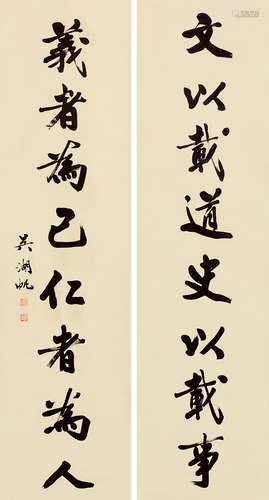 文以載道史以載事
義者為己仁者為人
吳湖帆